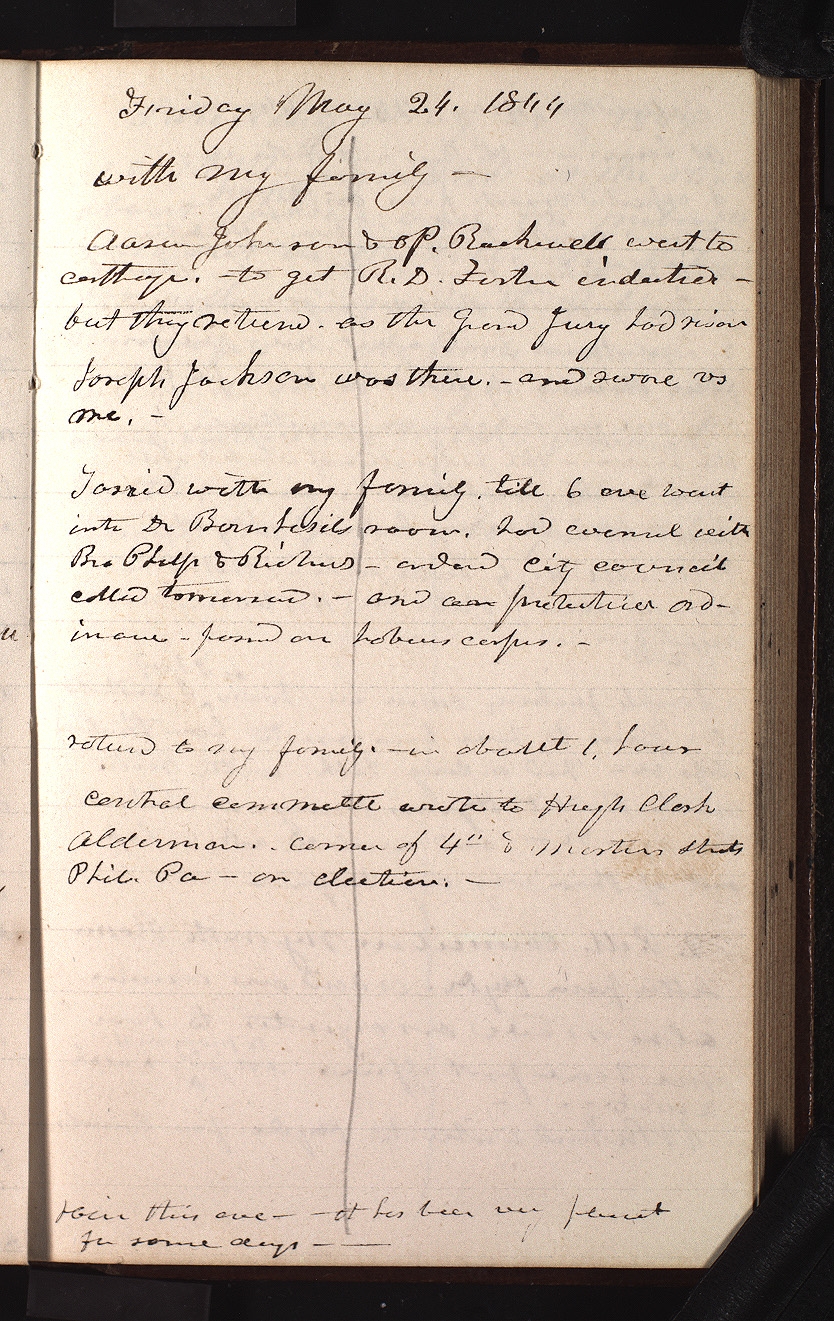 Friday May 24. 1844
with my family —
Aaron Johnson & OP. Rockwell went to
carthage. - to get R. D. Foster indicted -
but they returnd. as the grand Jury had risen
Joseph Jackson was there. - and swore vs
me. -
Tarried with my family, till 6 eve went
into Dr Bernhisels room. had counsel with
Bro Phelps & Richards - orderd City council
called tomorrow. - and a protection ord-
inance - passd on habeus corpus. -
return'd to my family. - in about 1, hour
central committe wrote to Hugh Clark
Alderman. . corner of 4th & Masters Streets
Phil. Pa - on election. -
rain this eve - - it has been very pleasant
for some days - —